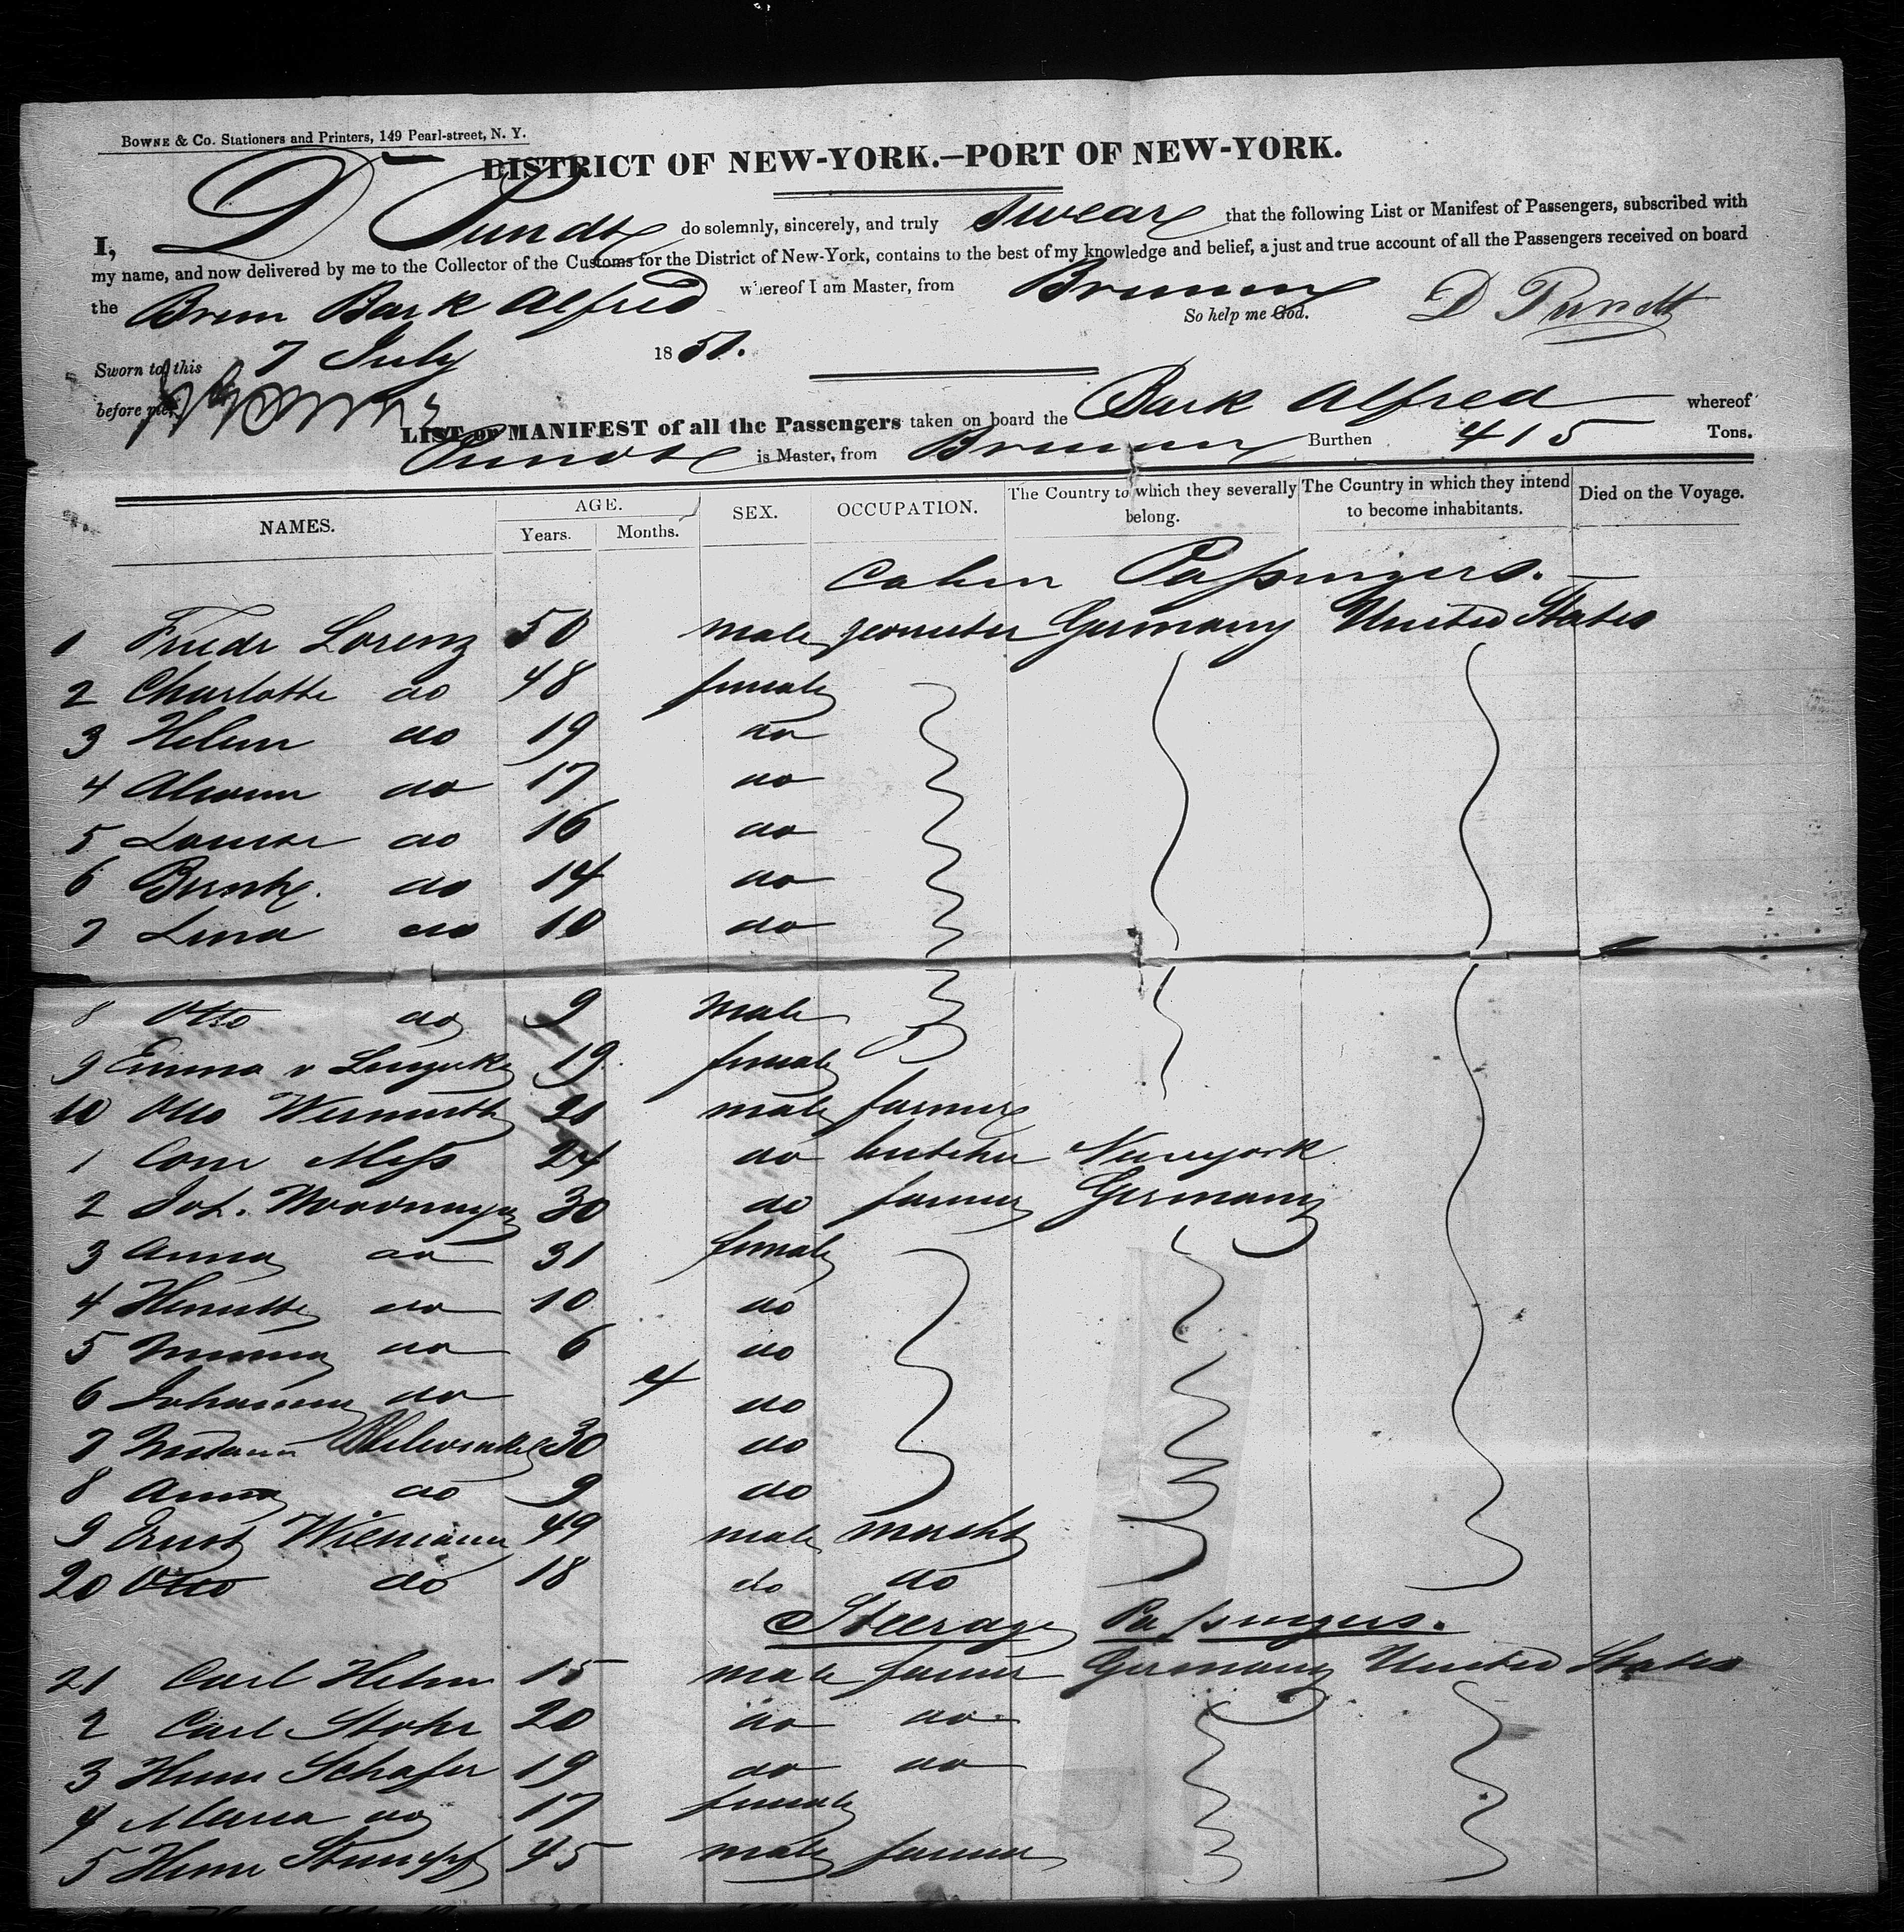 BOWNE & Co. Stationers and Printers, 149 Pearl-street, N. Y.
DISTRICT OF NEW-YORK.—PORT OF NEW-YORK.
I, D Pundt do solemnly, sincerely, and truly swear that the following List or Manifest of Passengers, subscribed with
my name, and now delivered by me to the Collector of the Customs for the District of New-York, contains to the best of my knowledge and belief, a just and true account of all the Passengers received on board
the Brem Bark Alfred whereof I am Master, from Bremen
So help me God. D Pundt
Sworn to this 7 July 1851.
before me,
LIST OR MANIFEST of all the Passengers taken on board the Bark Alfred whereof
Pundt is Master, from Bremen Burthen 415 Tons.
NAMES. AGE. Years. Months. SEX. OCCUPATION. The Country to which they severally belong. The Country in which they intend to become inhabitants. Died on the Voyage.
Cabin Passengers.
1 Friedr Lorenz 50 male geometer Germany United States
2 Charlotte do 48 female
3 Helene do 19 do
4 do 17 do
5 Louise do 16 do
6 do 14 do
7 Lina do 10 do
8 Otto do 9 male
9 Emma v 19 female
10 Otto Wermuth 21 male farmer
1 24 do butcher Newyork
2 Joh. 30 do farmer Germany
3 Anna do 31 female
4 do 10 do
5 do 6 do
6 Johanne do 4 do
7 30 do
8 Anna do 9 do
9 Ernst Wiemann 49 male mercht
20 Otto do 18 do do
Steerage Passengers.
21 Carl Helm 15 male farmer Germany United States
2 Carl Stohr 20 do do
3 Henr Schafer 19 do do
4 Maria do 17 female
5 Henr Stumpf 45 male farmer